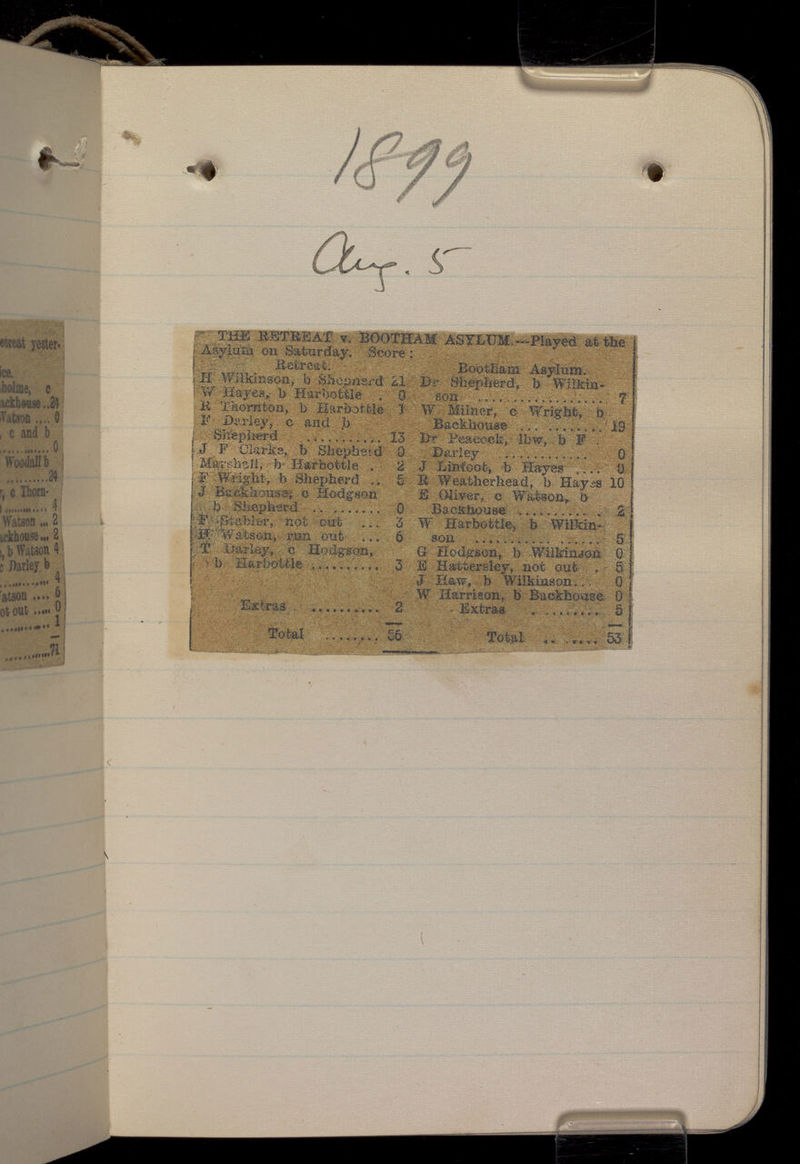 etreat yester-
ce.
holme, c
ackhouse..24
Watson .... 0
, c and b
............ 0
Woodall b
............ 24
, c Thorn-
............ 4
Watson ... 2
ackhouse... 2
, b Watson 4
c Darley b
............ 4
atson .... 6
ot out ..... 0
............ 1
............71
1899
Aug. 5
THE RETREAT v. BOOTHAM ASYLUM.—Played at the
Asylum on Saturday. Score:
Retreat.
H Wilkinson, b Shepherd 21
W Hayes, b Harbottle . 0
R Thornton, b Harbottle 1
F Darley, c and b
Shepherd ........... 13
J F Clarke, b Shepherd 0
Marshall, b Harbottle . 2
F Wright, b Shepherd .. 5
J Backhouse, c Hodgson
b Shepherd .. ........ 0
F Stabler, not out ... 3
Watson, run out ... 6
T Darley, c Hodgson,
b Harbottle .......... 3
Extras . .......... 2
Total ........ 56
Bootham Asylum.
Dr Shepherd, b Wilkin-
son .................. 7
W Milner, c Wright, b
Backhouse ... ........ 19
Dr Peacock, lbw, b F
Darley ............ 0
J Linfoot, b Hayes .... 0
R Weatherhead, b Hayes 10
E Oliver, c Watson, b
Backhouse .......... 2
W Harbottle, b Wilkin-
son .......... ...... 5
G Hodgson, b Wilkinson 0
E Hattersley, not out . 5
J Haw, b Wilkinson... 0
W Harrison, b Backhouse 0
Extras . ......... 5
Total .. ...... 53